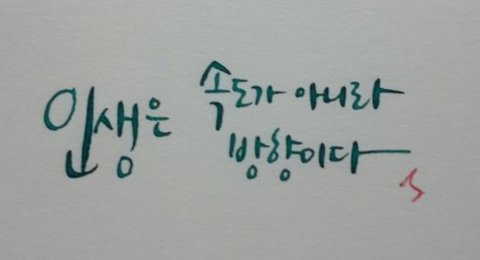 인생은 속도가 아니라
방향이다